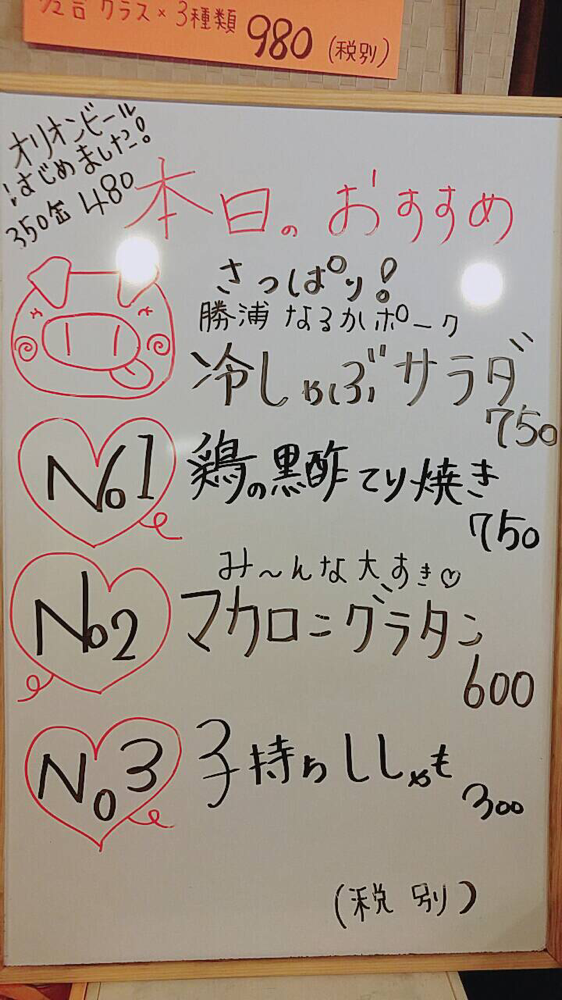 1/2合 グラス×3種類 980 (税別)
オリオンビール
はじめました!
350缶 480
本日の おすすめ
さっぱり!
勝浦 なるかポーク
冷しゃぶサラダ
750
No1 鶏の黒酢てり焼き
750
み〜んな大すき♡
No2 マカロニグラタン
600
No3 子持ちししゃも
300
(税別)